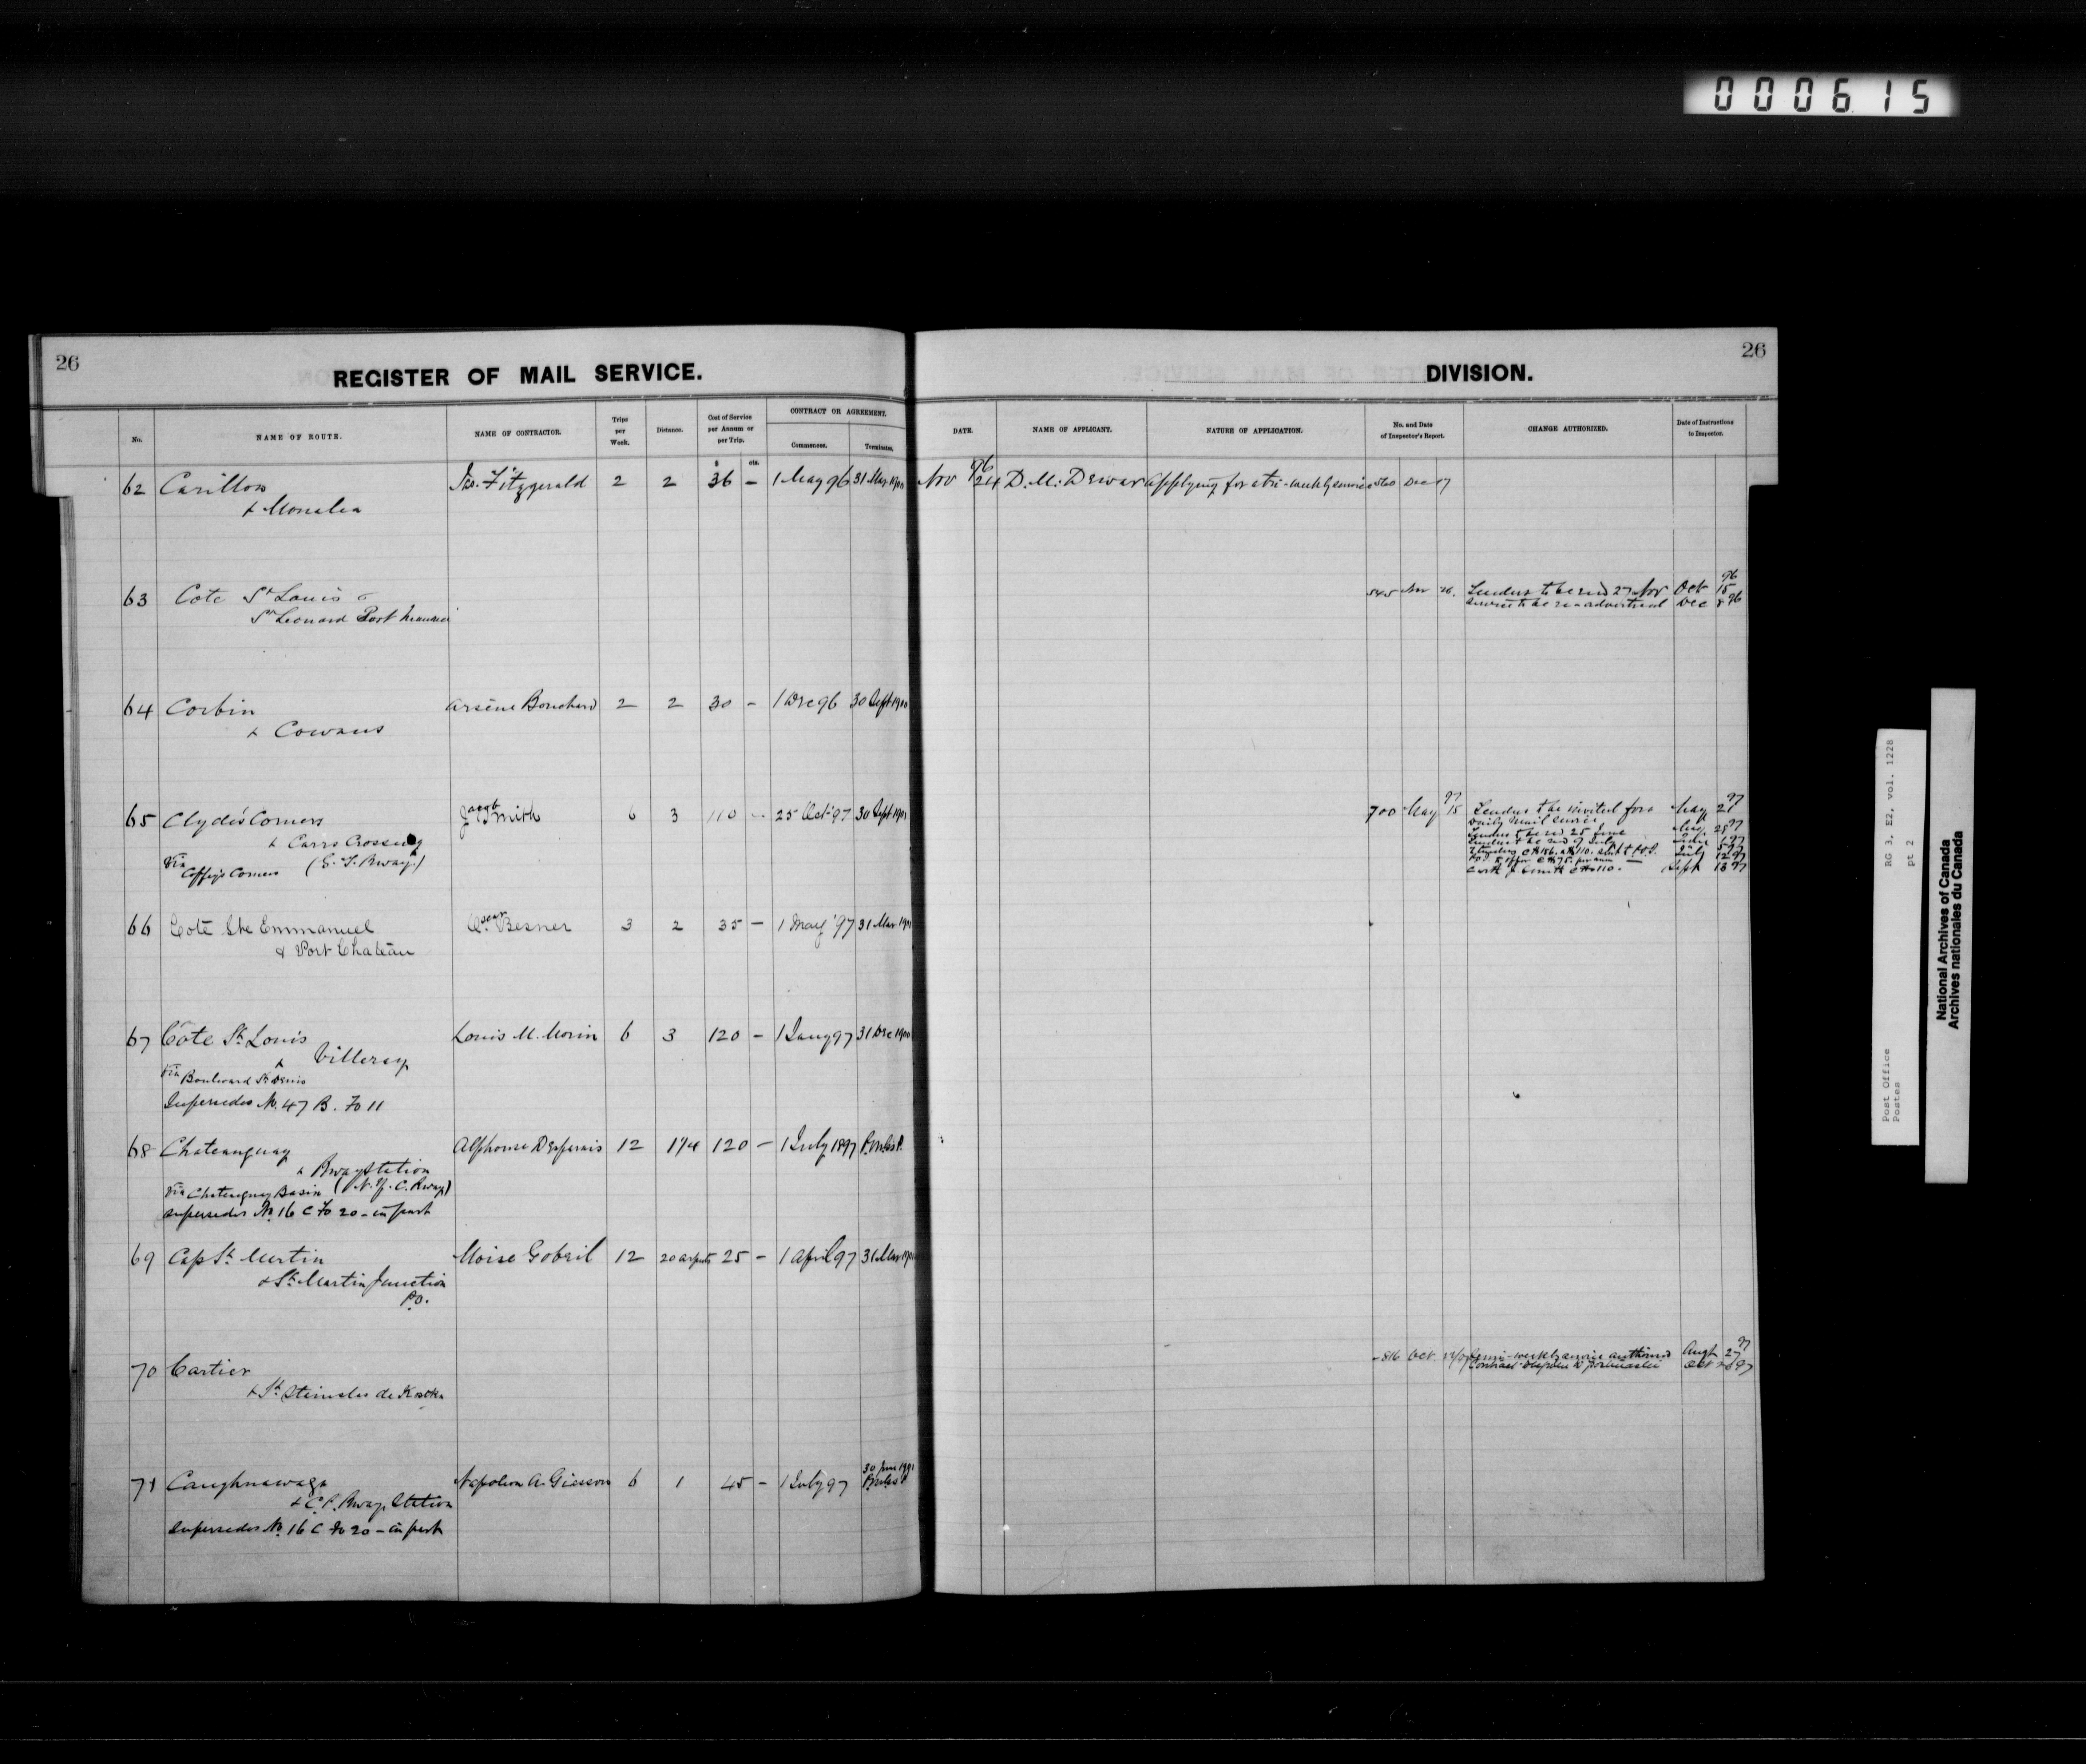 000615
26
REGISTER OF MAIL SERVICE.
No.
NAME OF ROUTE.
NAME OF CONTRACTOR.
Trips per Week.
Distance.
Cost of Service per Annum or per Trip.
$ cts.
CONTRACT OR AGREEMENT.
Commences.
Terminates.
62 Carillon Jas. Fitzgerald 2 2 36 – 1 May 96 31 Mar 1900
& Monalea
63 Cote St Louis &
St Leonard Port Maurice
64 Corbin Arsène Bouchard 2 2 30 – 1 Dec 96 30 Sept 1900
& Cowans
65 Clyde's Corners Jacob Smith 6 3 110 – 25 Oct '97 30 Sept
& Carrs Crossing
Via Coffey's Corners (G. T. Rway.)
66 Coté Ste Emmanuel Oscar Besner 3 2 35 – 1 May '97 31 Mar 1901
& Port Chateau
67 Côte St. Louis Louis M. Morin 6 3 120 – 1 Jany 97 31 Dec 1900
& Villeray
Via Boulevard St Denis
Supersedes No. 47 B. Fo 11
68 Chateauguay Alphonse Desparais 12 1¼ 120 – 1 July 1897
& Rway Station
Via Chateauguay Basin (N. Y. C. Rway)
supersedes No. 16 C Fo 20 – in part
69 Cap St. Martin Moise Gobeil 12 20 arpents 25 – 1 April 97 31 Mar 1901
& St. Martin Junction
P.O.
70 Cartier
& St. Stanislas de Kostka
71 Caughnawaga Napoleon A. Giasson 6 1 45 – 1 July 97 30 June 1901
& C. P. Rway. Station
Supersedes No. 16 C Fo 20 – in part
26
DIVISION.
DATE.
NAME OF APPLICANT.
NATURE OF APPLICATION.
No. and Date of Inspector's Report.
CHANGE AUTHORIZED.
Date of Instructions to Inspector.
Nov 96 24 D. M. Dewar Applying for a tri-weekly service 560 Dec 17
545 Nov 26. Tenders to be recd 27 Nov Oct 15 96
Service to be re-advertised Dec 8 96
700 May 97 15 Tenders to be invited for a May 21 97
Daily Mail service
Tenders to be recd 25 June
July 12 97
Sept 18 97
816 Oct Semi-weekly service authorized Augt 27 97
Oct 97
Post Office
Postes
RG 3, E2, vol. 1228
pt 2
National Archives of Canada
Archives nationales du Canada